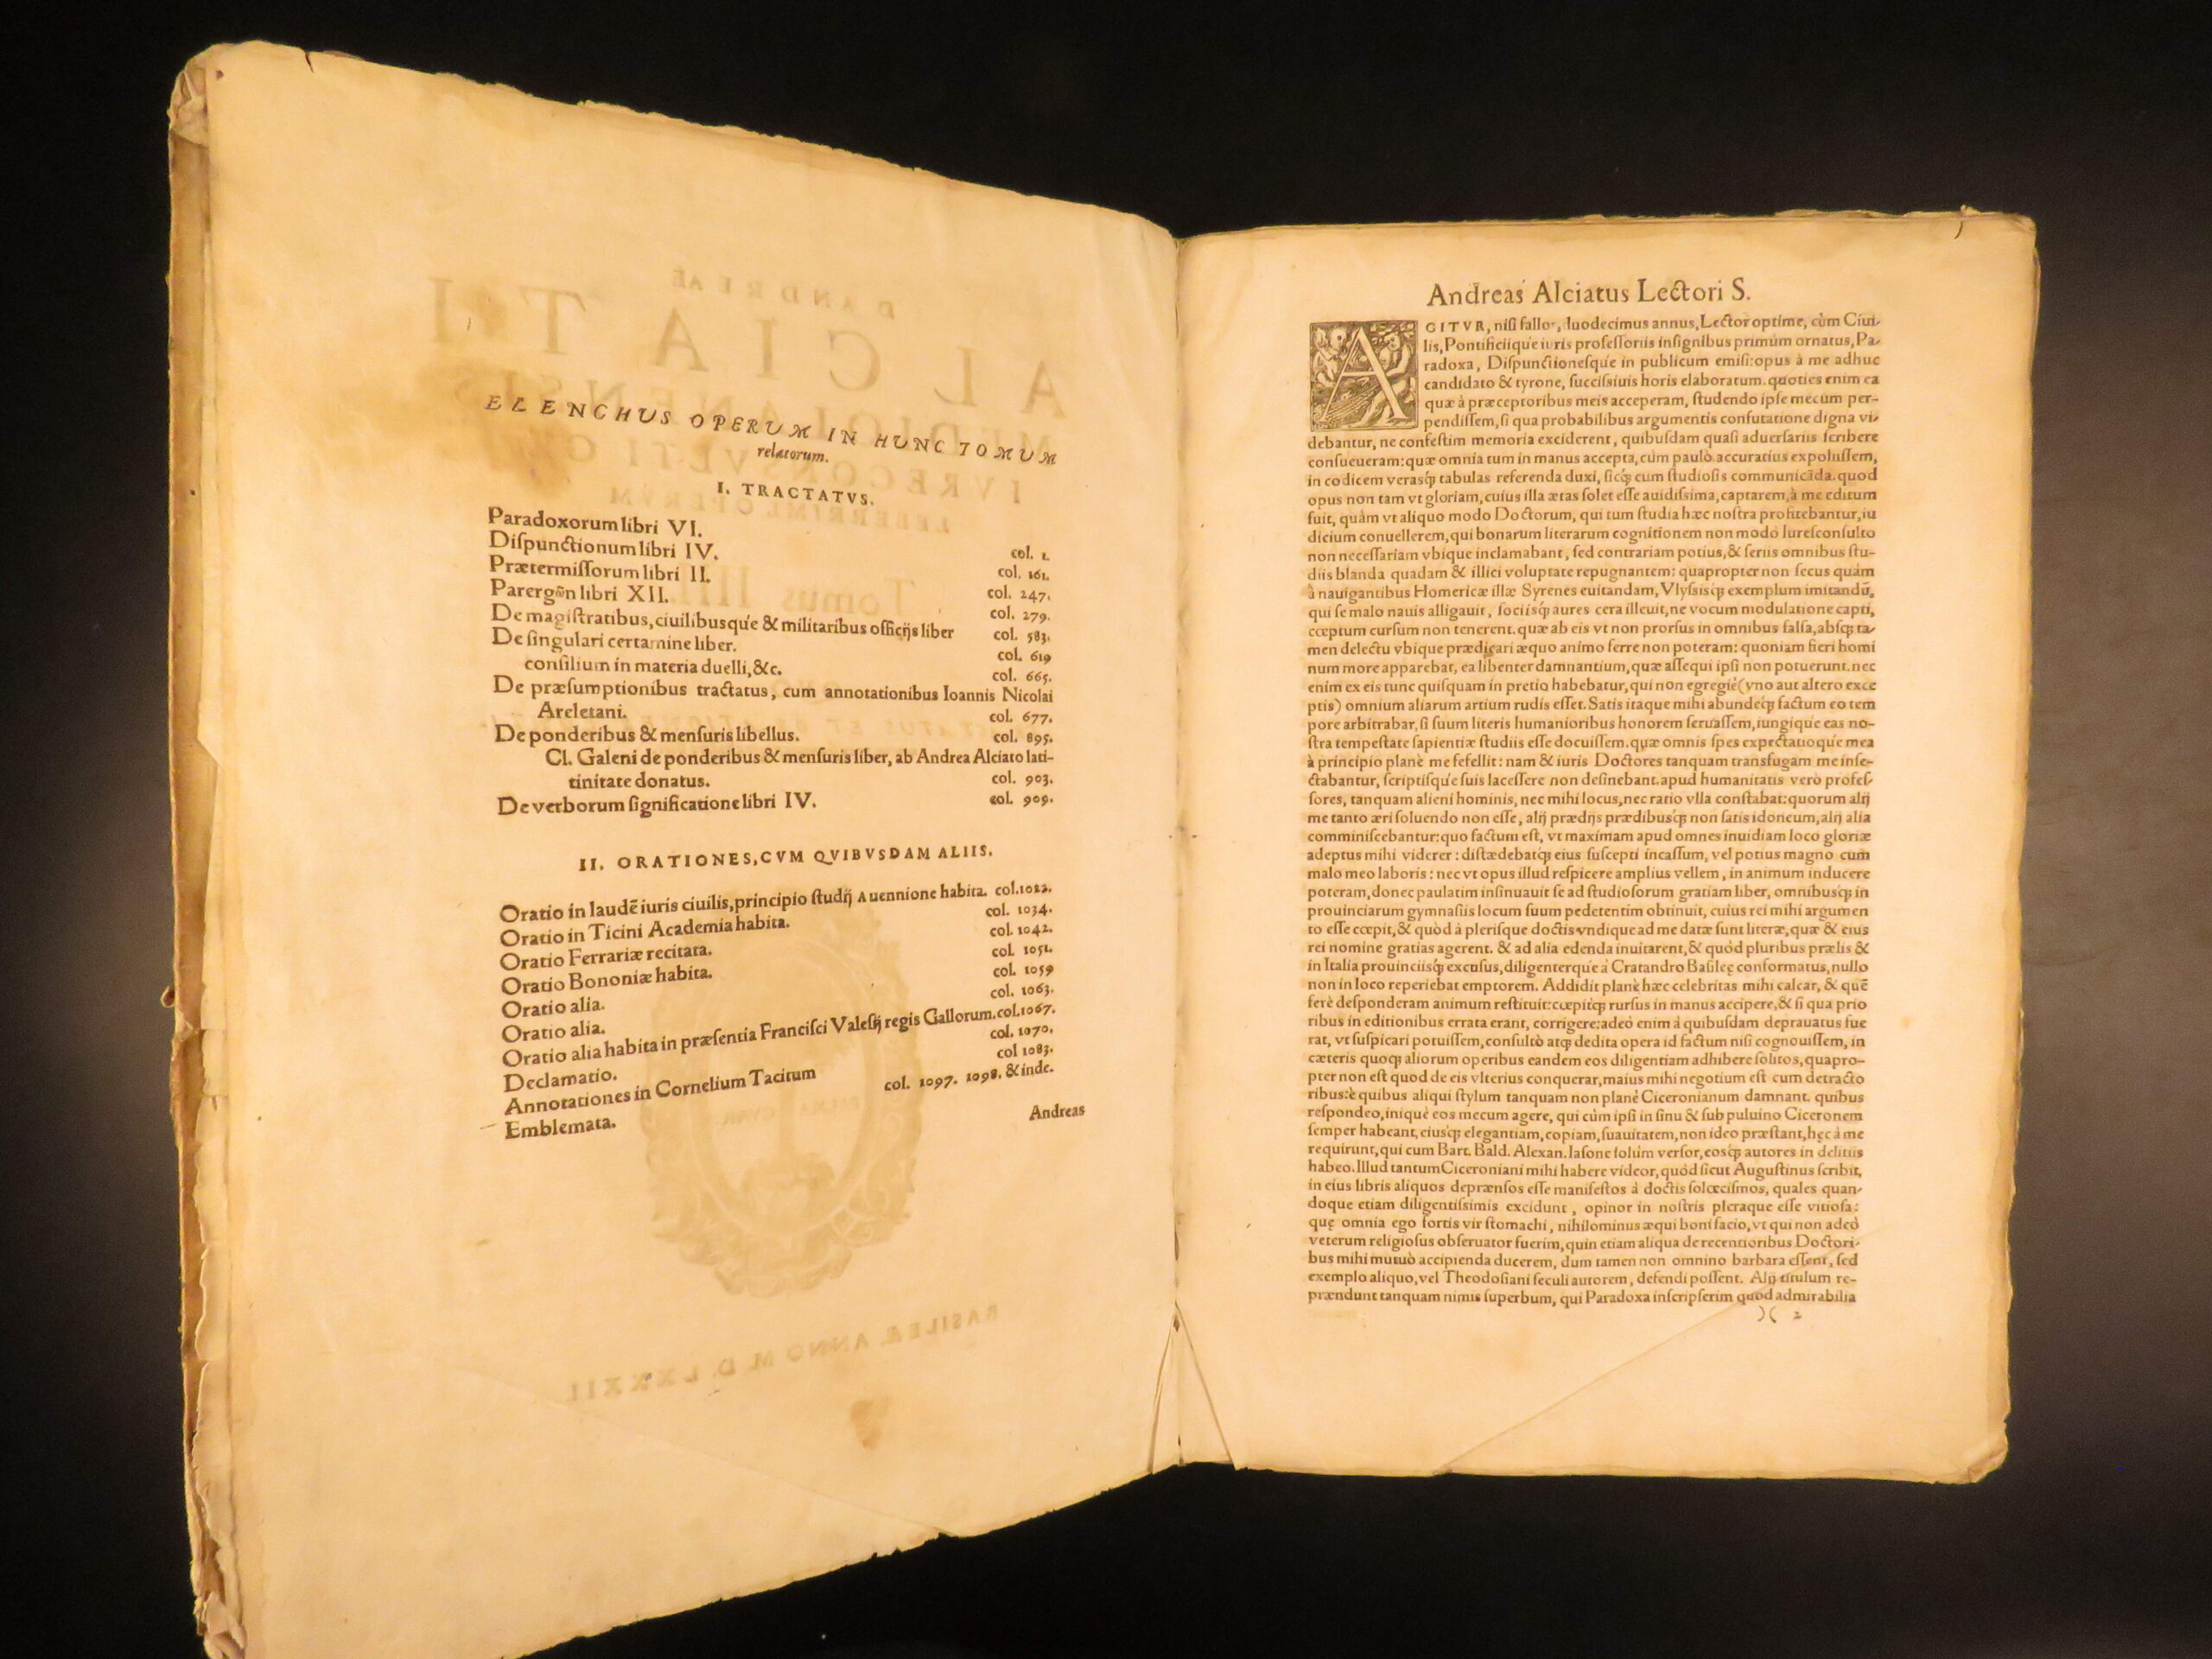 ELENCHUS OPERUM IN HUNC TOMUM
relatorum.
I. TRACTATVS.
Paradoxorum libri VI. col. 1.
Diſpunctionum libri IV. col. 161.
Prætermiſſorum libri II. col. 247.
Parergῶn libri XII. col. 279.
De magiſtratibus, ciuilibusq́ue & militaribus officijs liber col. 583.
De ſingulari certamine liber. col. 619
conſilium in materia duelli, &c. col. 665.
De præſumptionibus tractatus, cum annotationibus Ioannis Nicolai
Areletani. col. 677.
De ponderibus & menſuris libellus. col. 895.
Cl. Galeni de ponderibus & menſuris liber, ab Andrea Alciato lati-
tinitate donatus. col. 903.
De verborum ſignificatione libri IV. col. 909.
II. ORATIONES, CVM QVIBVSDAM ALIIS.
Oratio in laudē iuris ciuilis, principio ſtudij Auennione habita. col. 1022.
Oratio in Ticini Academia habita. col. 1034.
Oratio Ferrariæ recitata. col. 1042.
Oratio Bononiæ habita. col. 1051.
Oratio alia. col. 1059
Oratio alia. col. 1063.
Oratio alia habita in præſentia Franciſci Valeſij regis Gallorum. col. 1067.
Declamatio. col. 1070.
Annotationes in Cornelium Tacitum col 1083.
Emblemata. col. 1097. 1098. & inde.
Andreas
Andreas Alciatus Lectori S.
AGITVR, niſi fallor, duodecimus annus, Lector optime, cùm Ciui-
lis, Pontificiiq́ue iuris profeſſoriis inſignibus primùm ornatus, Pa-
radoxa, Diſpunctionesq́ue in publicum emiſi: opus à me adhuc
candidato & tyrone, ſucciſsiuis horis elaboratum. quoties enim ea
quæ à præceptoribus meis acceperam, ſtudendo ipſe mecum per-
pendiſſem, ſi qua probabilibus argumentis confutatione digna vi-
debantur, ne confeſtim memoria exciderent, quibuſdam quaſi aduerſariis ſcribere
conſueueram: quæ omnia tum in manus accepta, cùm paulò accuratius expoliſſem,
in codicem verasq́; tabulas referenda duxi, ſicq́; cum ſtudioſis communicāda. quod
opus non tam vt gloriam, cuius illa ætas ſolet eſſe auidiſsima, captarem, à me editum
fuit, quàm vt aliquo modo Doctorum, qui tum ſtudia hæc noſtra profitebantur, iu
dicium conuellerem, qui bonarum literarum cognitionem non modò Iureſconſulto
non neceſſariam vbique inclamabant, ſed contrariam potius, & ſeriis omnibus ſtu-
diis blanda quadam & illici voluptate repugnantem: quapropter non ſecus quàm
à nauigantibus Homericæ illæ Syrenes euitandam, Vlyſsisq́; exemplum imitandū,
qui ſe malo nauis alligauit, ſociisq́; aures cera illeuit, ne vocum modulatione capti,
cœptum curſum non tenerent. quæ ab eis vt non prorſus in omnibus falſa, abſq́; ta-
men delectu vbique prædicari æquo animo ferre non poteram: quoniam fieri homi
num more apparebat, ea libenter damnantium, quæ aſſequi ipſi non potuerunt. nec
enim ex eis tunc quiſquam in pretio habebatur, qui non egregiè (vno aut altero exce
ptis) omnium aliarum artium rudis eſſet. Satis itaque mihi abundeq́; factum eo tem
pore arbitrabar, ſi ſuum literis humanioribus honorem ſeruaſſem, iungiq́ue eas no-
ſtra tempeſtate ſapientiæ ſtudiis eſſe docuiſſem. quæ omnis ſpes expectatioq́ue mea
à principio planè me fefellit: nam & iuris Doctores tanquam transfugam me inſe-
ctabantur, ſcriptiſq́ue ſuis laceſſere non deſinebant. apud humanitatis verò profeſ-
ſores, tanquam alieni hominis, nec mihi locus, nec ratio vlla conſtabat: quorum alij
me tanto æri ſoluendo non eſſe, alij prædijs prædibusq́; non ſatis idoneum, alij alia
comminiſcebantur: quo factum eſt, vt maximam apud omnes inuidiam loco gloriæ
adeptus mihi viderer: diſtædebatq́; eius ſuſcepti incaſſum, vel potius magno cum
malo meo laboris: nec vt opus illud reſpicere amplius vellem, in animum inducere
poteram, donec paulatim inſinuauit ſe ad ſtudioſorum gratiam liber, omnibusq́; in
prouinciarum gymnaſiis locum ſuum pedetentim obtinuit, cuius rei mihi argumen
to eſſe cœpit, & quòd à pleriſque doctis vndique ad me datæ ſunt literæ, quæ & eius
rei nomine gratias agerent. & ad alia edenda inuitarent, & quòd pluribus prælis &
in Italia prouinciisq́; excuſus, diligenterq́ue à Cratandro Baſileę conformatus, nullo
non in loco reperiebat emptorem. Addidit planè hæc celebritas mihi calcar, & quē
ferè deſponderam animum reſtituit: cœpitq́; rurſus in manus accipere, & ſi qua prio
ribus in editionibus errata erant, corrigere: adeò enim à quibuſdam deprauatus fue
rat, vt ſuſpicari potuiſſem, conſultò atq́; dedita opera id factum niſi cognouiſſem, in
cæteris quoq́; aliorum operibus eandem eos diligentiam adhibere ſolitos, quapro-
pter non eſt quod de eis vlterius conquerar, maius mihi negotium eſt cum detracto
ribus: è quibus aliqui ſtylum tanquam non planè Ciceronianum damnant. quibus
reſpondeo, iniquè eos mecum agere, qui cùm ipſi in ſinu & ſub puluino Ciceronem
ſemper habeant, eiusq́; elegantiam, copiam, ſuauitatem, non ideo præſtant, hęc à me
requirunt, qui cum Bart. Bald. Alexan. Iaſone ſolùm verſor, eosq́; autores in delitiis
habeo. Illud tantum Ciceroniani mihi habere videor, quòd ſicut Auguſtinus ſcribit,
in eius libris aliquos deprænſos eſſe manifeſtos à doctis ſolœciſmos, quales quan-
doque etiam diligentiſsimis excidunt, opinor in noſtris pleraque eſſe vitioſa:
quę omnia ego fortis vir ſtomachi, nihilominus æqui boni facio, vt qui non adeò
veterum religioſus obſeruator fuerim, quin etiam aliqua de recentioribus Doctori-
bus mihi mutuò accipienda ducerem, dum tamen non omnino barbara eſſent, ſed
exemplo aliquo, vel Theodoſiani ſeculi autorem, defendi poſſent. Alij titulum re-
prændunt tanquam nimis ſuperbum, qui Paradoxa inſcripſerim quod admirabilia
)( 2